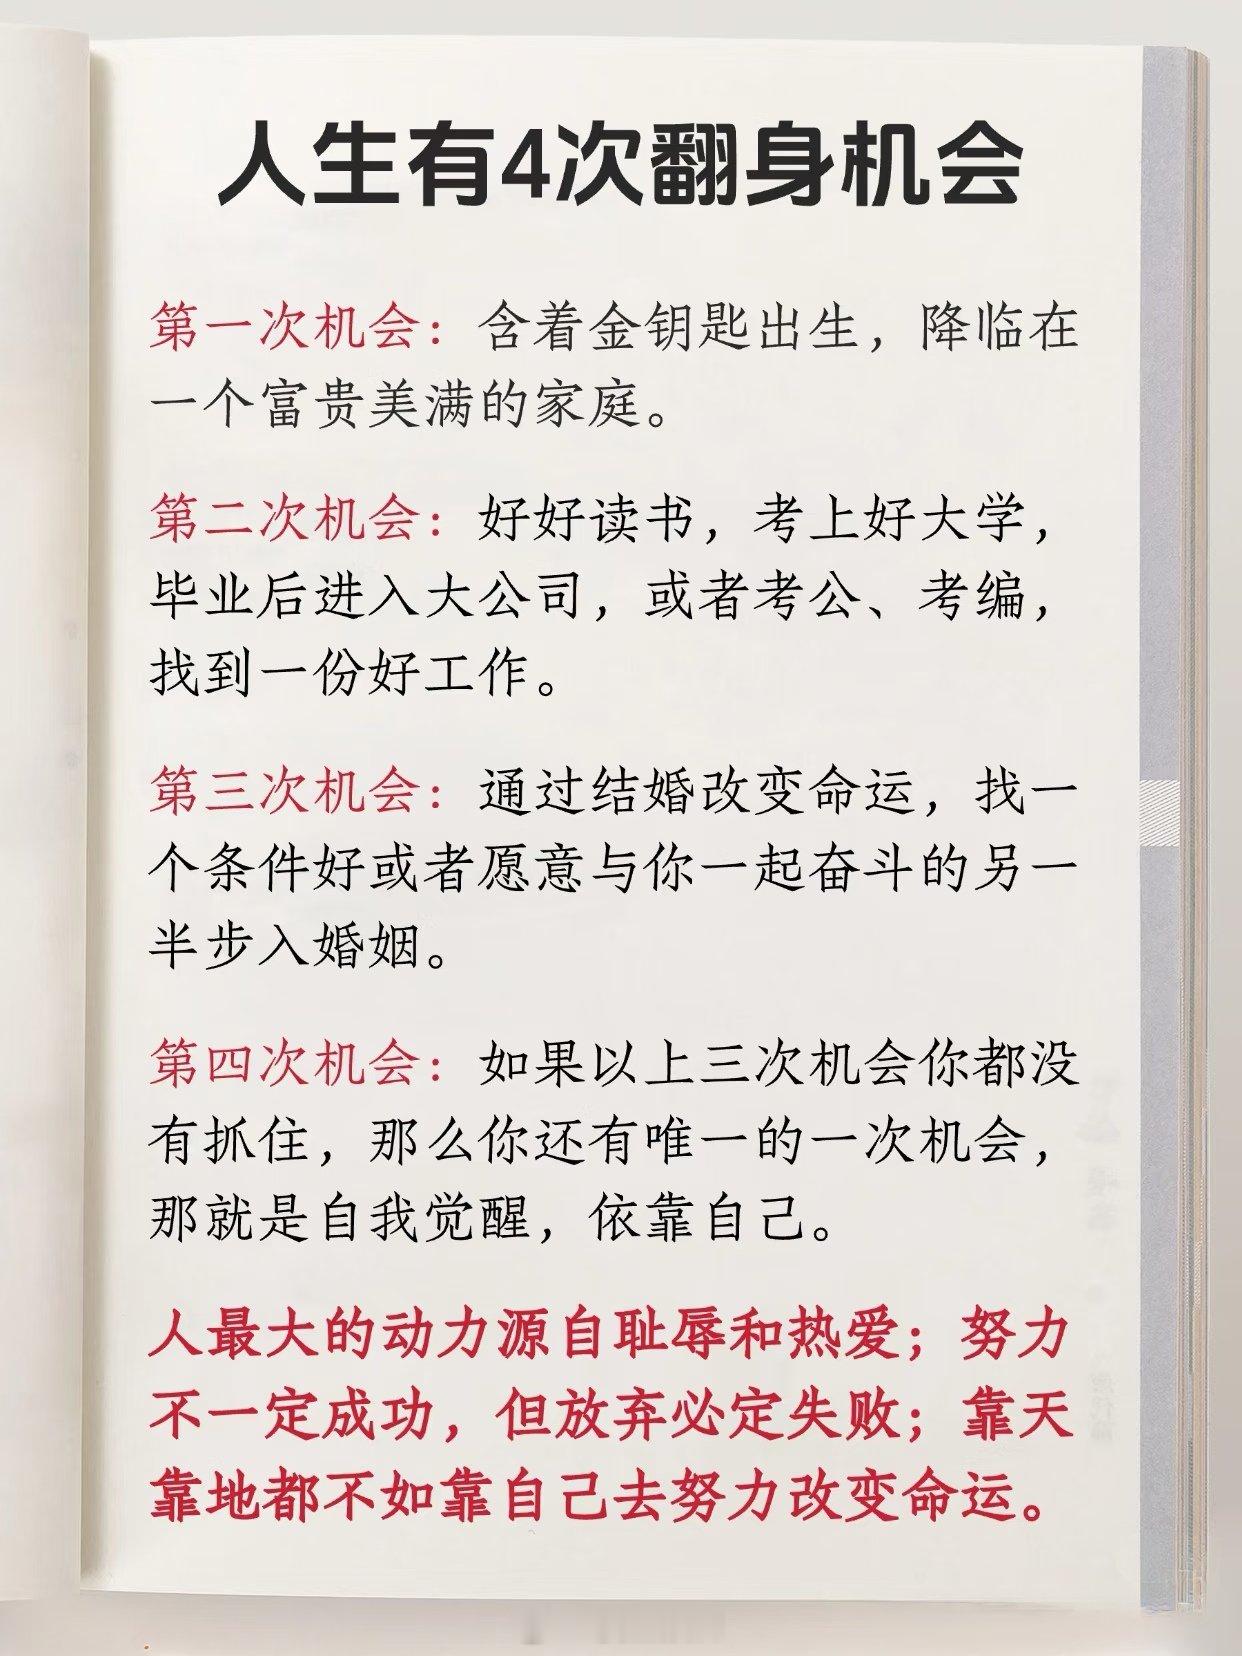 人生有4次翻身机会
第一次机会：含着金钥匙出生，降临在
一个富贵美满的家庭。
第二次机会：好好读书，考上好大学，
毕业后进入大公司，或者考公、考编，
找到一份好工作。
第三次机会：通过结婚改变命运，找一
个条件好或者愿意与你一起奋斗的另一
半步入婚姻。
第四次机会：如果以上三次机会你都没
有抓住，那么你还有唯一的一次机会，
那就是自我觉醒，依靠自己。
人最大的动力源自耻辱和热爱；努力
不一定成功，但放弃必定失败；靠天
靠地都不如靠自己去努力改变命运。